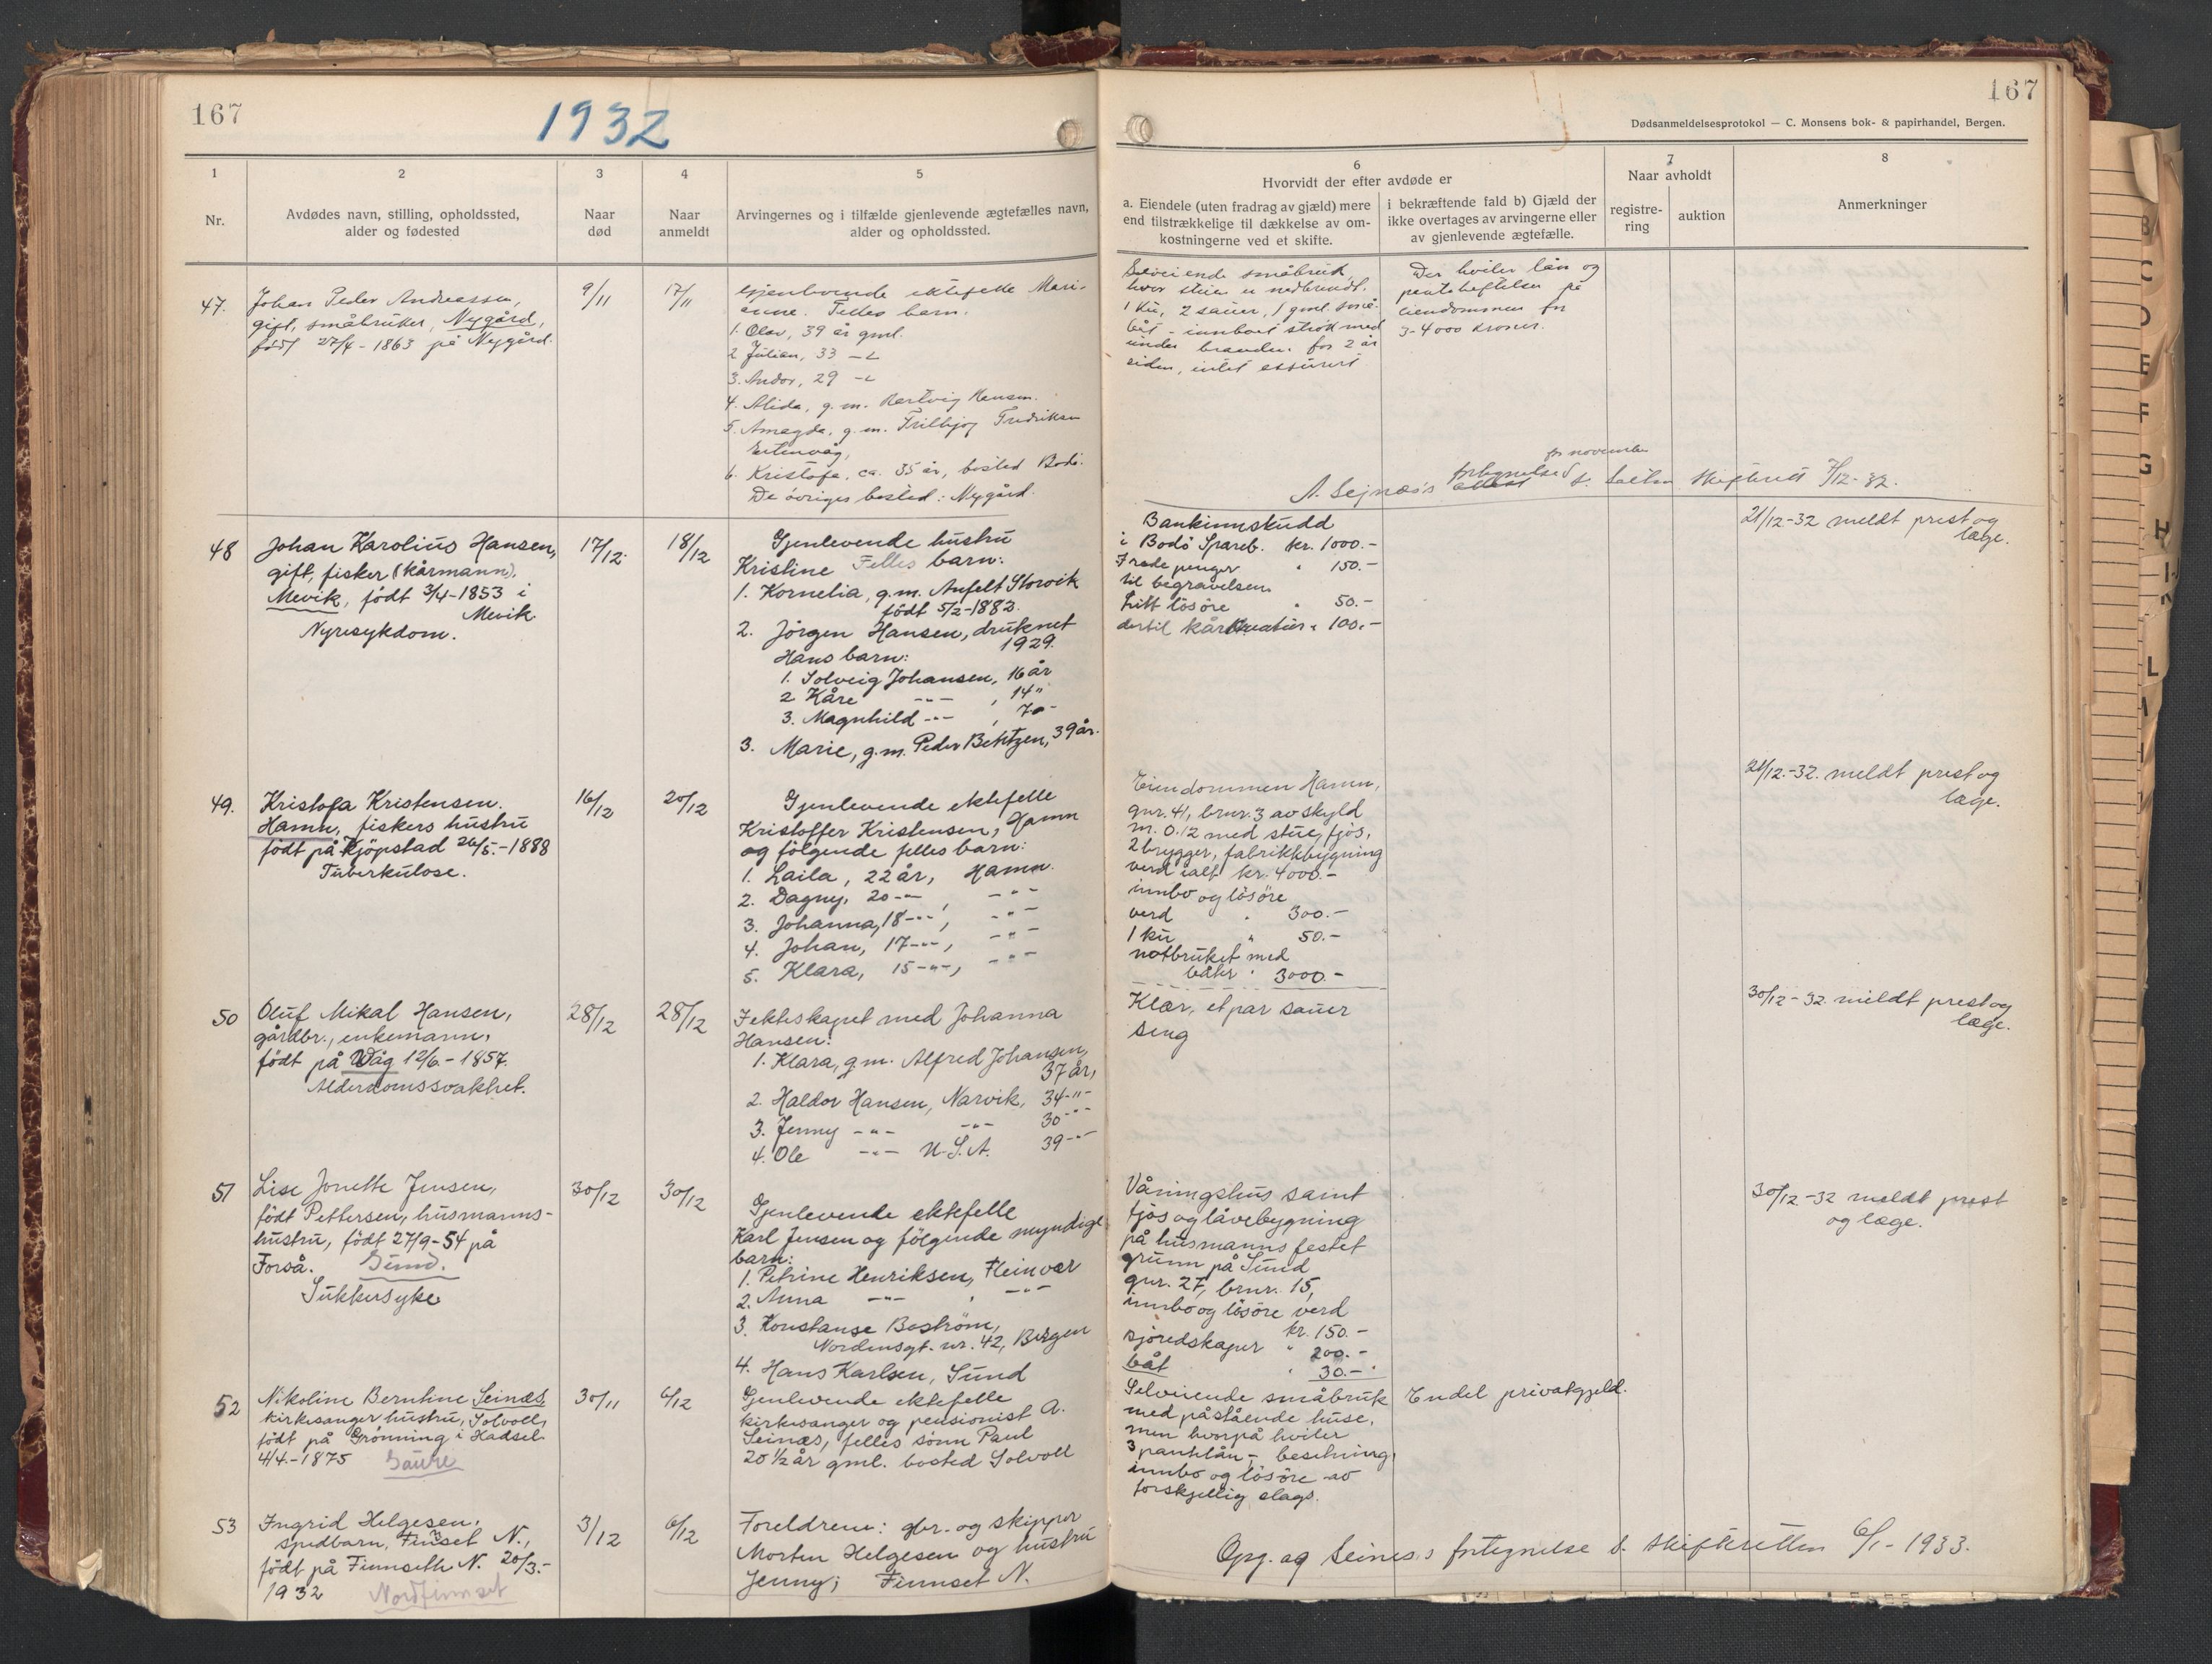 167
1932
167
Dødsanmeldelsesprotokol — C. Monsens bok- & papirhandel, Bergen.
1
Nr.
2
Avdødes navn, stilling, opholdssted,
alder og fødested
3
Naar
død
4
Naar
anmeldt
5
Arvingernes og i tilfælde gjenlevende ægtefælles navn,
alder og opholdssted.
6
Hvorvidt der efter avdøde er
a. Eiendele (uten fradrag av gjæld) mere
end tilstrækkelige til dækkelse av om-
kostningerne ved et skifte.
i bekræftende fald b) Gjæld der
ikke overtages av arvingerne eller
av gjenlevende ægtefælle.
7
Naar avholdt
registre-
ring
auktion
8
Anmerkninger
47.
Johan Peder Andreassen,
gift, småbruker, Nygård,
født 27/4 - 1863 på Nygård.
9/11
17/11
Gjenlevende ektefelle Mari-
anne. Felles barn.
1. Olav, 39 år gml.
2 Julian, 33 -"-
3. Andor, 29 -"-
4. Alida, g.m. Hartvig Hansen.
5. Amagda, g.m. Frithjof Fredriksen
6. Kristofa, ca. 35 år, bosted Bodø.
De øvriges bosted: Nygård.
Selveiende småbruk,
hvor stuen er nedbrendt.
1 ku, 2 sauer, 1 gml. små-
båt - innboet strøk med
under branden for 2 år
siden, intet assurert
Der hviler lån og
panteheftelser på
eiendommen for
3-4000 kroner.
for november
A. Sejnæs's fortegnelse t. Salten skifterett 7/12-32.
48
Johan Karolius Hansen,
gift, fisker (kårmann),
Mevik, født 3/4-1853 i
Mevik
Nyresykdom.
17/12.
18/12
Gjenlevende hustru
Kristine Felles barn:
1. Kornelia, g.m. Anfelt Storvik
født 5/2-1882.
2. Jørgen Hansen, druknet
1929.
Hans barn:
1. Solveig Johansen, 16 år
2 Kåre -"- , 14 "
3. Magnhild -"- , 7 "-
3. Marie, g.m. Peder Bentzen, 39 år.
Bankinnskudd
i Bodø Spareb. kr. 1000.-
Frede penger " 150.-
til begravelsen
Litt løsøre " 50.-
dertil kår " 100.-
21/12-32 meldt prest og
læge.
49.
Kristofa Kristensen.
Hamn, fiskers hustru
født på Kjøpstad 26/5.-1888
Tuberkulose.
16/12
20/12
Gjenlevende ektefelle
Kristoffer Kristensen, Hamn
og følgende felles barn:
1. Laila, 22 år, Hamn.
2. Dagny, 20 -"- , -"-
3. Johanna, 18 -"-, -"-
4. Johan, 17 -"-, -"-
5. Klara, 15 -"-, -"-
Eiendommen Hamn,
gnr. 41, brnr. 3 av skyld
m. 0.12 med stue, fjøs,
2 brygger, fabrikkbygning
verd ialt kr. 4000.-
innbo og løsøre
verd " 300.-
1 ku " 50.-
notbruket med
båter " 3000.-
21/12.-32. meldt prest og
læge.
50
Oluf Mikal Hansen,
gårdbr., enkemann,
født på Våg 12/6.-1857.
Alderdomssvakhet.
28/12
28/12
I ekteskapet med Johanna
Hansen:
1. Klara, g.m. Alfred Johansen,
37 år,
2. Haldor Hansen, Narvik, 34 -"-
3. Jenny -"- -"- 30 -"-
4. Ole -"- U.S.A. 39 -"-
Klær, et par sauer
seng
30/12-32. meldt prest og
læge.
51
Lise Jonette Jensen,
født Pettersen, husmanns-
hustru, født 27/9-54 på
Forså. Sund.
Sukkersyke
30/12
30/12
Gjenlevende ektefelle
Karl Jensen og følgende myndige
barn:
1. Petrine Henriksen, Fleinvær
2. Anna -"- , -"-
3. Konstanse Bostrøm,
Nordensgt. nr. 42, Bergen
4. Hans Karlsen, Sund
Våningshus samt
fjøs og låvebygning
på husmanns festet
grunn på Sund
gnr. 27, brnr. 15,
innbo og løsøre verd
kr. 150.-
sjøredskaper " 200.-
båt " 30.-
30/12-32 meldt prest
og læge.
52
Nikoline Berntine Seinæs,
kirkesanger hustru, Solvoll,
født på Grønning i Hadsel
4/4.-1875 Saure
30/11
6/12
Gjenlevende ektefelle
kirkesanger og pensionist A.
Seinæs, felles sønn Paul
20 ½ år gml. bosted Solvoll
Selveiende småbruk
med påstående huse,
men hvorpå hviler
3 pantelån, besetning,
innbo og løsøre av
forskjellig slags.
Endel privatgjeld.
53
Ingrid Helgesen,
spedbarn, Finset N.,
født på Finnseth N. 20/3.-
1932 Nordfinnset
3/12
6/12
Foreldrene: gbr. og skipper
Morten Helgesen og hustru
Jenny; Finnset N.
Opg. ag Seines's fortegnelse t. skifteretten 6/1-1933.
B
C
D
E
F
G
H
L